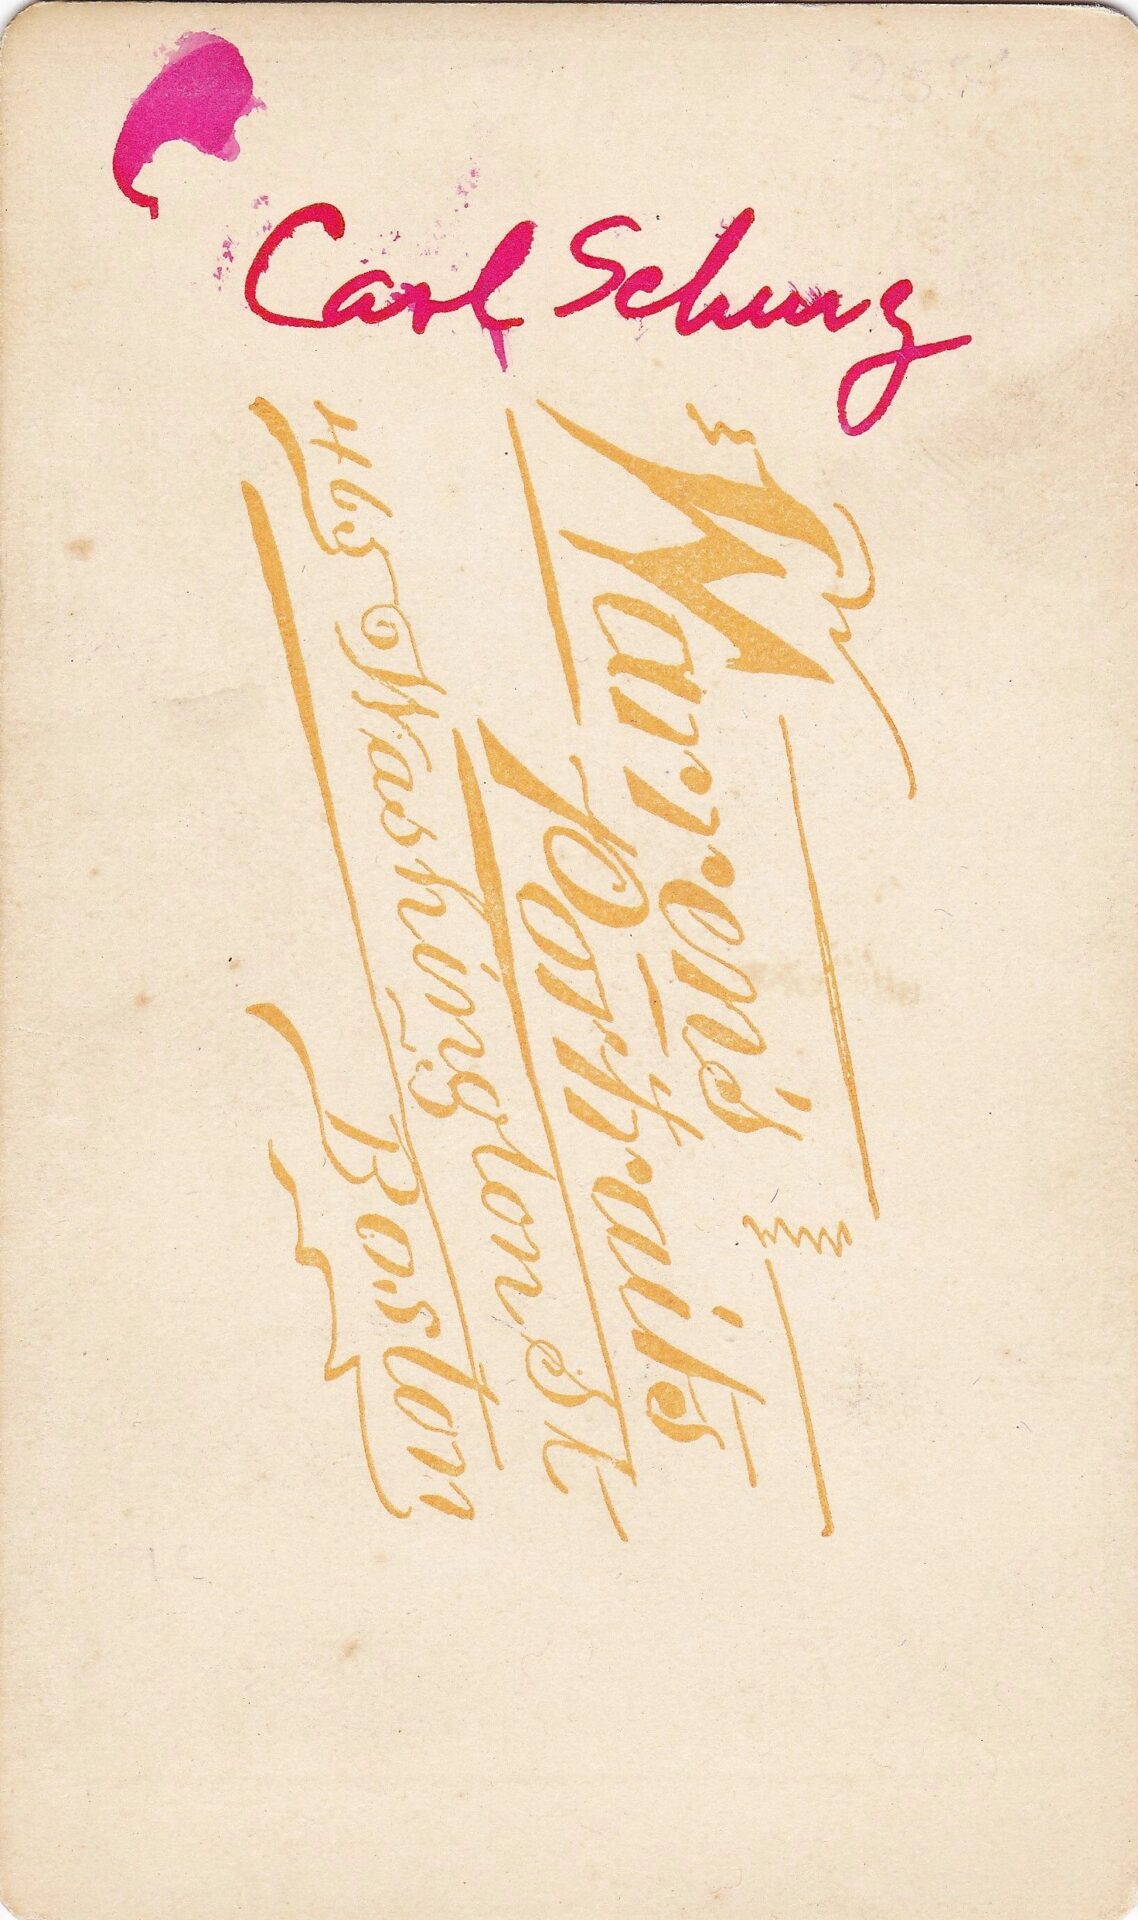 Carl Schurz
Warren's
Portraits
465 Washington St
Boston